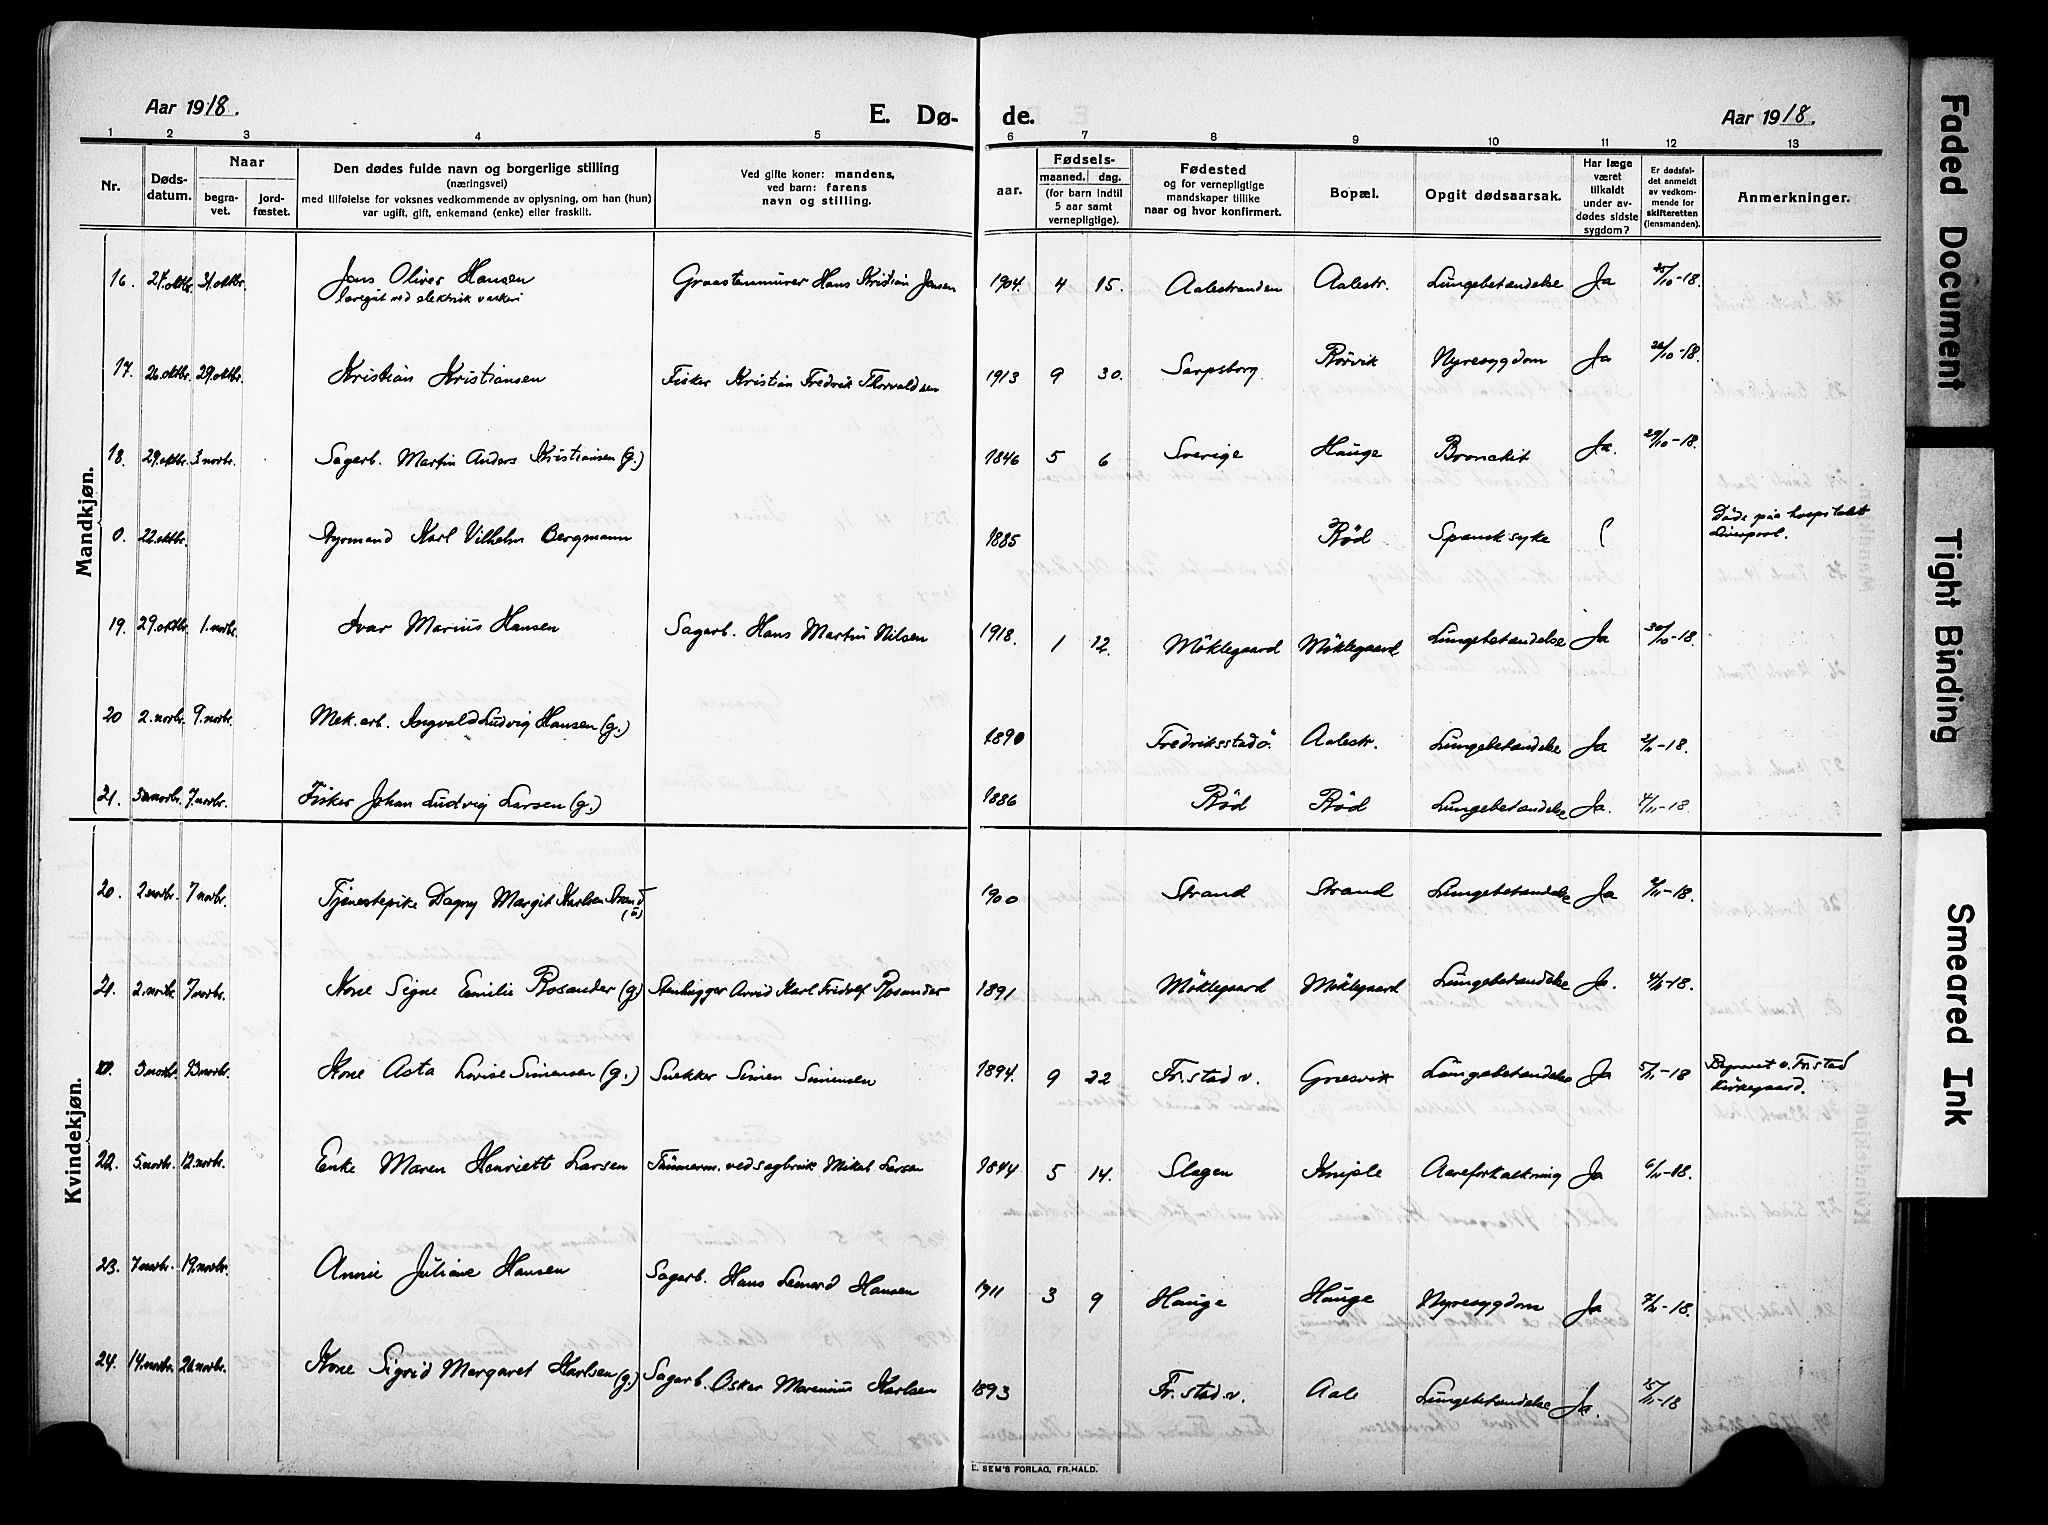 Aar 1918. E. Dø- de. Aar 1918.
1 2 3 4 5 6 7 8 9 10 11 12 13
Nr.
Døds-
datum.
Naar
begra-
vet.
jord-
fæstet.
Den dødes fulde navn og borgerlige stilling
(næringsvei)
med tilføielse for voksnes vedkommende av oplysning, om han (hun)
var ugift, gift, enkemand (enke) eller fraskilt.
Ved gifte koner: mandens,
ved barn: farens
navn og stilling.
aar.
Fødsels-
maaned. dag.
(for barn indtil
5 aar samt
vernepligtige).
Fødested
og for vernepligtige
mandskaper tillike
naar og hvor konfirmert.
Bopæl.
Opgit dødsaarsak.
Har læge
været
tilkaldt
under av-
dødes sidste
sygdom?
Er dødsfal-
det anmeldt
av vedkom-
mende for
skifteretten
(lensmanden).
Anmerkninger.
Mandkjøn.
16. 27.oktbr. 31.oktbr. Jens Oliver Hansen Graastenmurer Hans Kristian Jensen 1904. 4 15. Aalestranden Aalestr. Lungebetændelse Ja /10-18.
ved elektrisk verkeri
17. 26.oktbr. 29.oktbr. Kristian Kristiansen Fisker Kristian Fredrik Thorvaldsen 1913 9 30. Sarpsborg. Rørvik Nyresygdom Ja 28/10-18.
18. 29.oktbr. 3 novbr. Sagarb. Martin Anders Kristiansen (g.) 1846 5 6 Sverige Hauge Bronchit Ja. 29/10-18.
0. 22.oktbr. Styrmand Karl Vilhelm Bergmann 1885 Rød Spansk syke ( Døde paa hospitalet
Liverpool.
19. 29.oktbr. 1.novbr. Ivar Marius Hansen Sagarb. Hans Martin Nilsen 1918. 1 12. Møklegaard Møklegaard Lungebetændelse Ja 30/10-18.
20 2.novbr. 9.novbr. Mek.arb. Ingvald Ludvig Hansen (g.) 1890 Fredriksstad ø. Aalestr. Lungebetændelse Ja 2/11-18.
21. 3novbr. 7.novbr. Fisker Johan Ludvig Larsen (g.) 1886 Rød Rød Lungebetændelse Ja. 4/11-18.
Kvindekjøn.
20. 2novbr. 7novbr. Tjenestepike Dagny Margit Karlsen Strand
(u) 1900 Strand Strand Lungebetændelse Ja /11-18.
21. 2.novbr. 7novbr. Kone Signe Emilie Rosander (g) Stenhugger Arvid Karl Fridolf Rosander 1891 Møklegaard Møklegaard Lungebetændelse Ja. 4/11-18.
3novbr. 13novbr. Kone Asta Lovise Simensen (g.) Snekker Simen Simensen 1894. 9 22 Fr.stad v. Gresvik Lungebetændelse Ja 5/11-18 v. Fr.stad
kirkegaard.
22. 5.novbr. 12.novbr. Enke Maren Henriette Larsen Tømmerm. ved sagbruk Mikal Larsen 1844 5 14. Slagen Kniple Aareforkalkning Ja 6/11-18.
23. 7novbr. 19.novbr. Annie Juliane Hansen Sagarb. Hans Lenard Hansen 1911 3 9 Hauge Hauge Nyresygdom Ja 7/11-18.
24. 14.novbr. 21novbr. Kone Sigrid Margaret Karlsen (g.) Sagarb. Oskar Marenius Karlsen 1893 Fr.stad.v. Aale Lungebetændelse Ja. 15/11-18
E. SEM'S FORLAG, FR.HALD.
Faded Document
Tight Binding
Smeared Ink